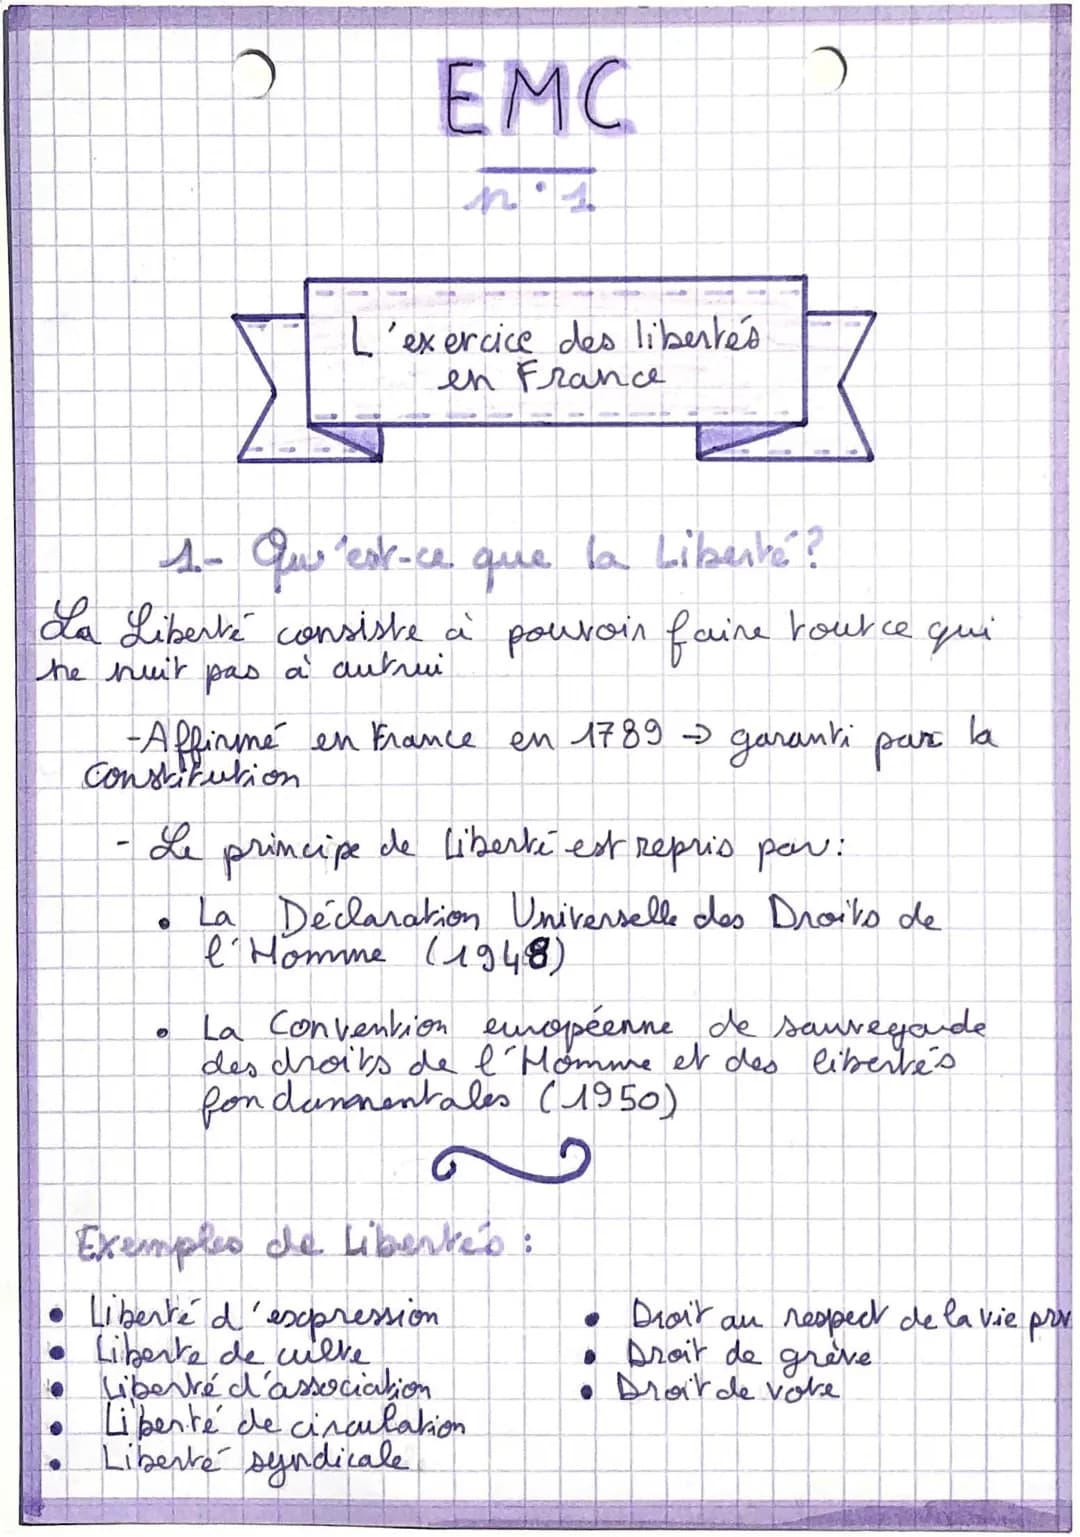 EMC
n°1
L'exercice des libertés
en France
1- Qu'est-ce que la Liberté?
La Liberté consiste à pouvoir faire tout ce qui
ne nuit pas à autrui
-Affirmé en France en 1789 → garanti par la
Constitution
- Le principe de liberté est repris par:
• La Déclaration Universelle des Droits de
l'Homme (1948)
• La Convention européenne de sauvegarde
des droits de l'Homme et des libertés
fondammentales (1950)
Exemples de Libertés :
• Liberté d'expression
• Liberte de culte
• Liberté d'association
• Liberté de circulation
• Liberté syndicale
• Droit au respect de la vie priv
• Droit de grève
• Droit de vote